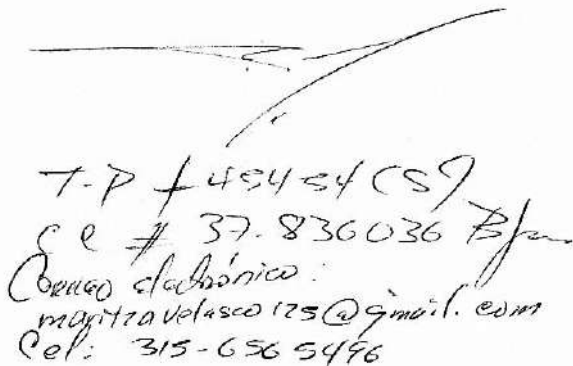 T.P # 45454 CSJ
CC # 37.836036 B/ga
Correo electrónico:
maritzavelasco125@gmail.com
Cel: 315-656 5496